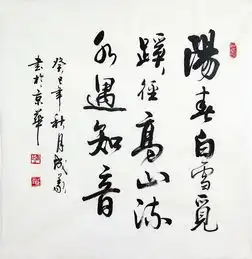 陽春白雪覓
蹊徑高山流
水遇知音
癸巳年秋月成義
書於京華